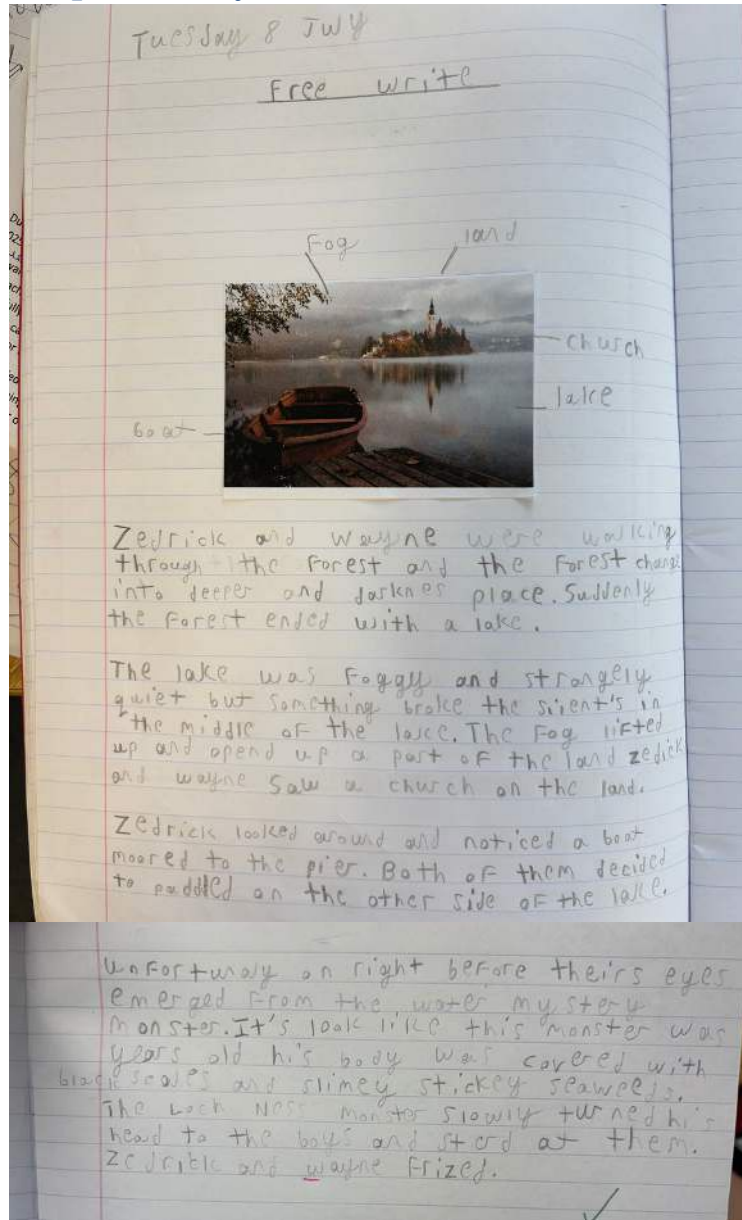 Tuesday 8 July
Free write
Fog
land
church
lake
boat
Zedrick and wayne were walking
through the Forest and the Forest change
into deeper and darknes place. Suddenly
the Forest ended with a lake.
The lake was Foggy and strangely
quiet but something broke the silent's in
the middle of the lake. The Fog lifted
up and opend up a part of the land zedick
and wayne saw a church on the land.
Zedrick looked around and noticed a boat
moored to the pier. Both of them decided
to paddled on the other side of the lake.
unfortunay on right before theirs eyes
emerged from the water mystery
monster. It's look like this monster was
years old hi's body was covered with
black scales and slimey stickey seaweeds.
The Loch Ness monster slowly turned hi's
head to the boys and sterd at them.
Zedrick and wayne Frized.